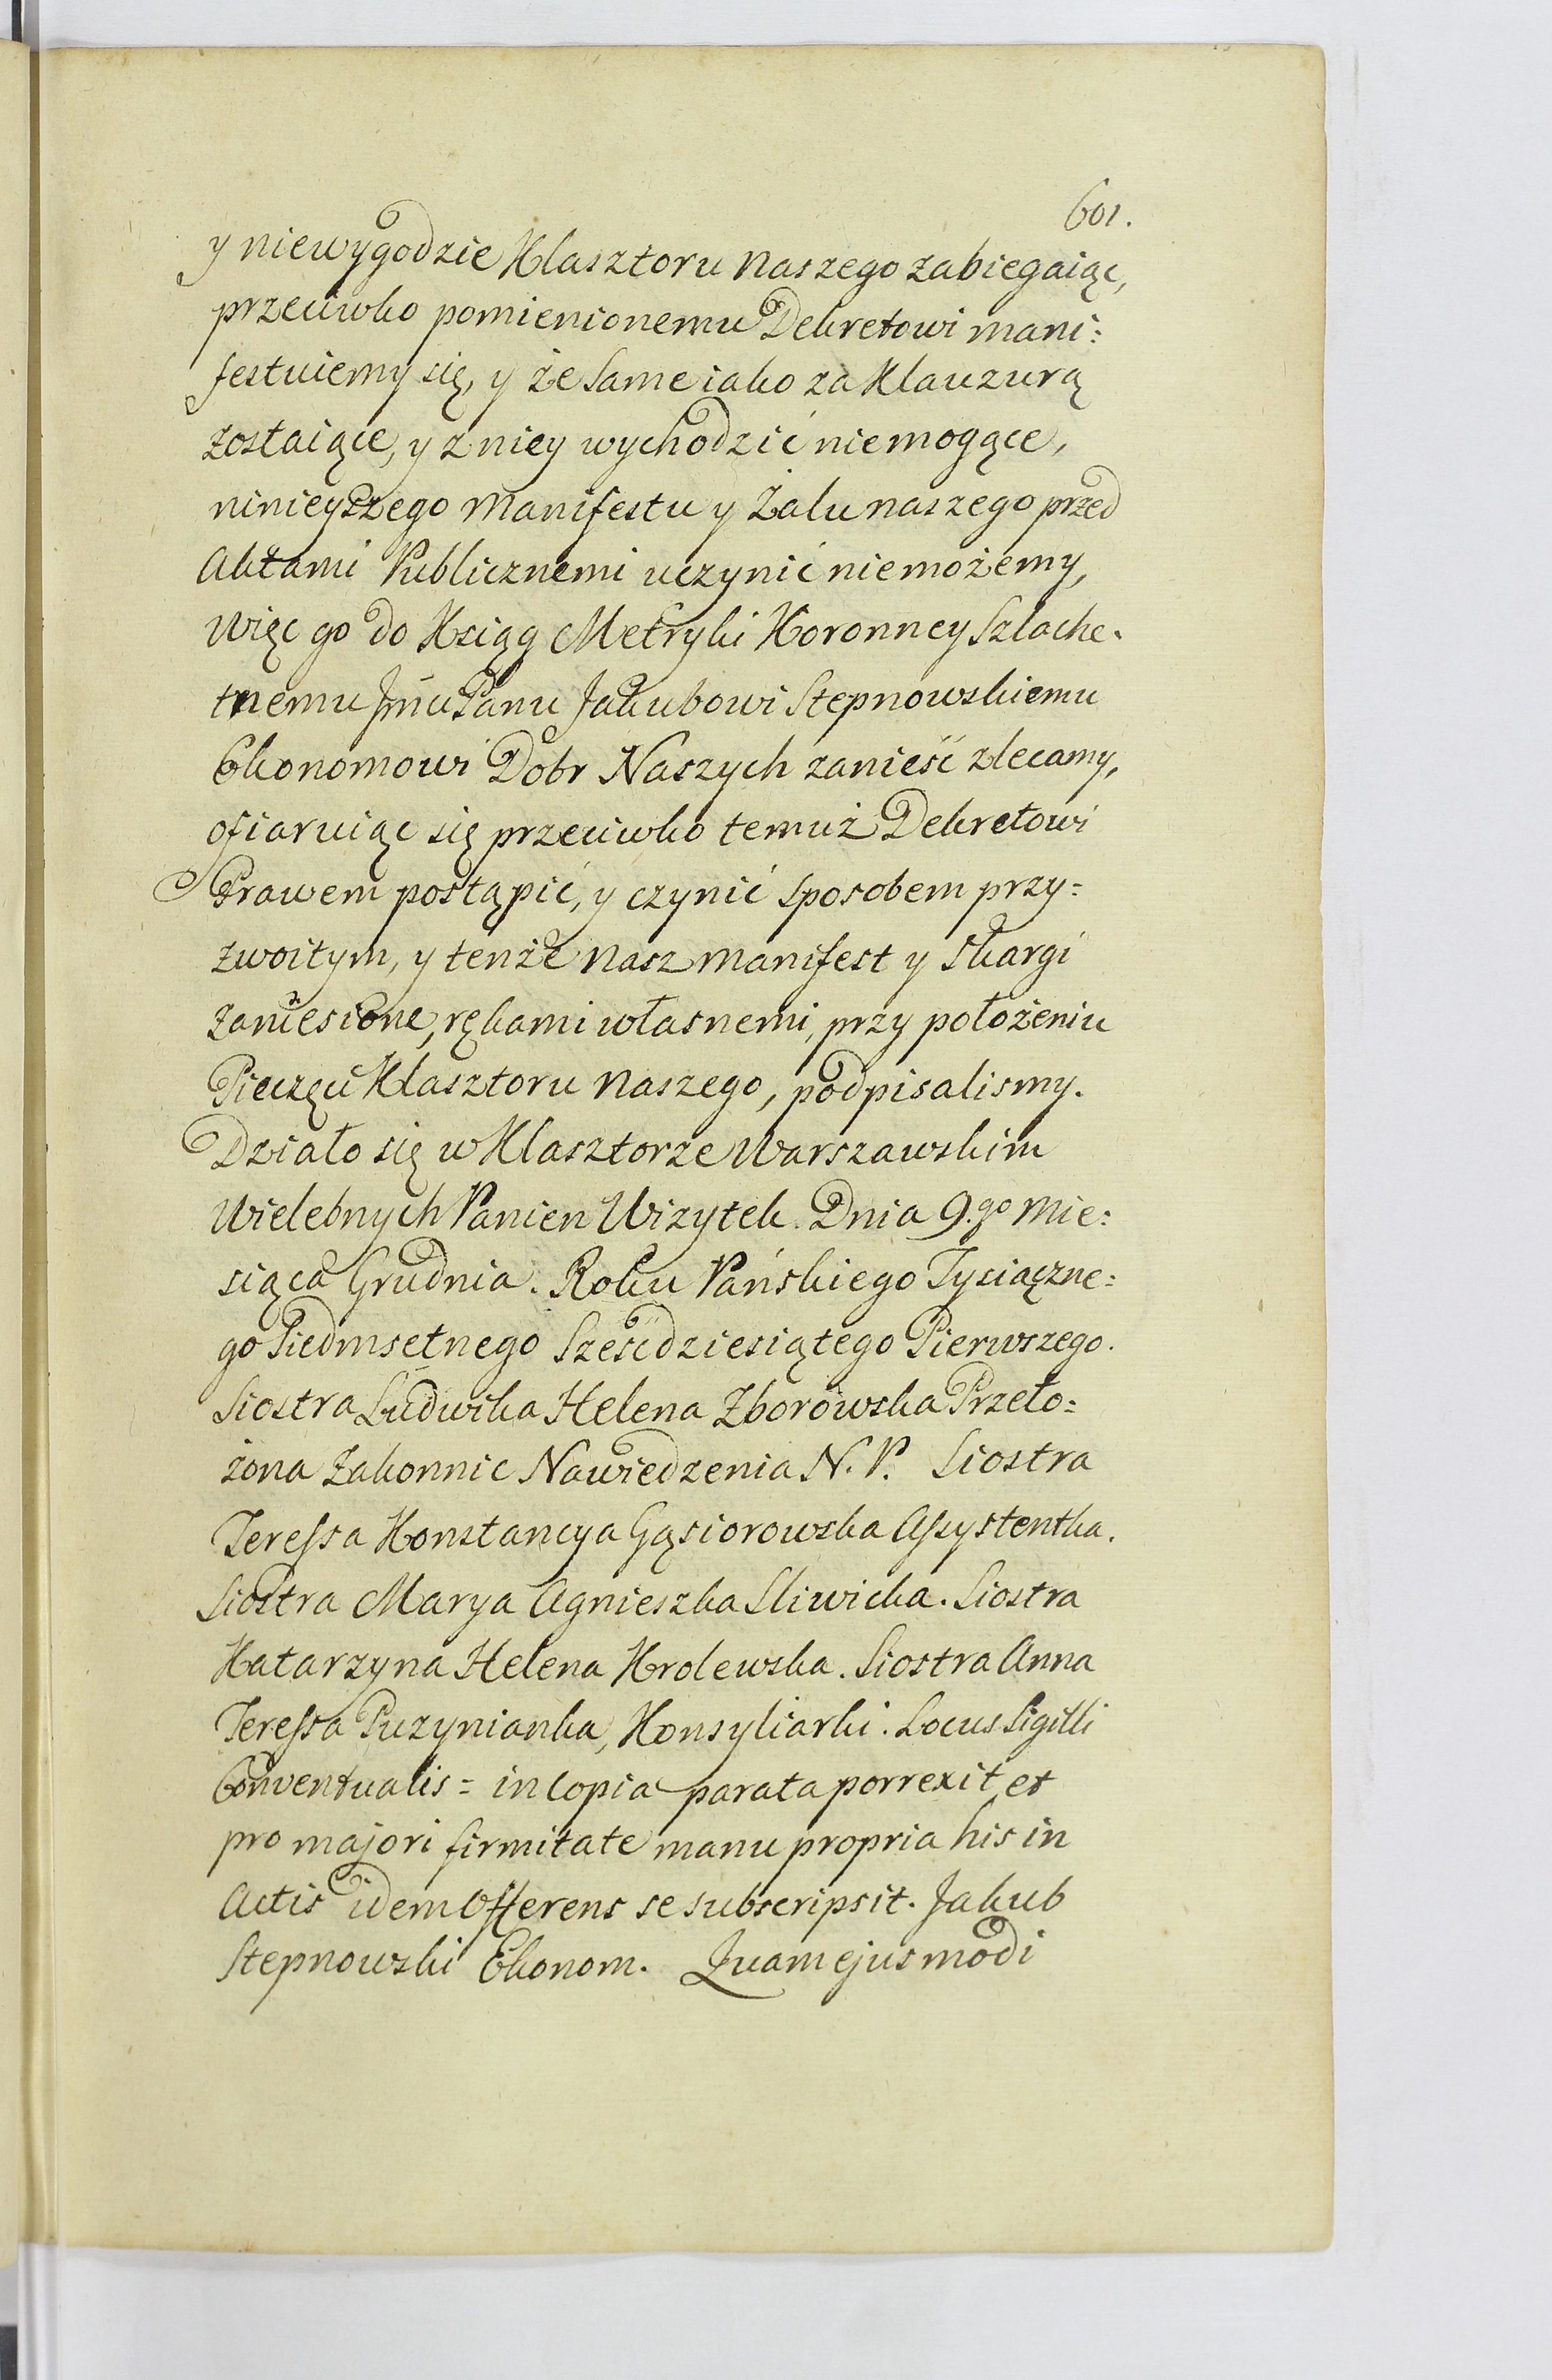 601.
y niewygodzie Klasztoru Naszego zabiegaiąc,
przeciwko pomienionemu Dekretowi mani:
festuiemy się, y że Same iako za Klauzurą
zostaiące, y z niey wychodzić niemogące,
ninieyszego Manifestu y Żalu naszego przed
Aktami Publicznemi uczynić niemożemy,
więc go do Ksiąg Metryki Koronney Szlache-
tnemu Jmu Panu Jakubowi Stepnowskiemu
Ekonomowi Dobr Naszych zanieść zlecamy,
ofiaruiąc się przeciwko temuż Dekretowi
Prawem postąpić, y czynić sposobem przy=
zwoitym, y tenże nasz manifest y Skargi
zaniesione, rękami własnemi, przy położeniu
Pieczęci Klasztoru naszego, podpisalismy.
Działo się w Klasztorze Warszawskim
Wielebnych Panien Wizytek. Dnia 9.go Mie:
siąca Grudnia. Roku Pańskiego Tysiączne:
go Siedmsetnego Sześcdziesiątego Pierwszego.
Siostra Ludwika Helena Zborowska Przeło=
żona Zakonnic Nawiedzenia N. P. Siostra
Teressa Konstancya Gąsiorowska Assystentka.
Siostra Marya Agnieszka Sliwicka. Siostra
Katarzyna Helena Krolewska. Siostra Anna
Teressa Puzynianka, Konsyliarki. Locus Sigilli
Conventualis = in Copia parata porrexit et
pro majori firmitate manu propria his in
Actis idem Offerens se subscripsit. Jakub
Stepnowski Ekonom. Quam ejusmodi